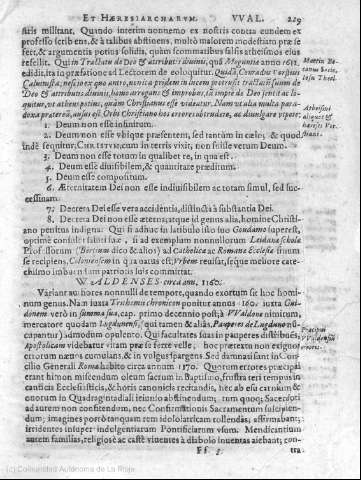 ET HÆRESIARCHARVM. VVAL. 229
stris militant. Quando interim nonnemo ex nostris contra eundem ex
professo scribens, & à talibus abstinens, multò maiorem modestiam præ se
fert, & argumentis potius solidis, quàm scommatibus salsis atheismos eius
refellit. Quin Tractatu de Deo & attributis diuinis, quod Moguntiæ anno 1615.
edidit, ita in præfatione ad Lectorem de eo loquitur. Quidã, Conradus Vorstius
Caluinista, nescio ex quo antro, in lucem protraxit tractatus suum de
Deo & attributis diuinis, homo arrogans & improbus, ita impiè de Deo sentit ac lo-
quitur, vt atheus potius, quàm Christianus esse videatur. Nam vt alia multa para-
doxa præterea, ausus est Orbi Christiano hos errores obtrudere, ac diuulgare vipera:
1. Deum esse infinitum.
2. Deum non esse vbique præsentem, sed tantùm in cælo, & quod
inde sequitur, CHRISTVM, cum in terris vixit, non fuisse verum Deum.
3. Deum non esse totum in qualibet re, in qua est.
4. Deum esse diuisibilem, & quantitate præditum.
5. Deum esse compositum.
6. Æternitatem Dei non esse indiuisibilem ac totam simul, sed suc-
cessiuam.
7. Decreta Dei esse vera accidentia, distincta à substantia Dei.
8. Decreta Dei non esse æterna, atque id genus alia, homine Christi-
ano penitus indigna. Qui si adhuc in latibulo isto suo Goudano superest,
optimè consulet saluti suæ, si ad exemplum nonnullorum Leidanæ Scholæ
Professorum (Bertium dico & alios) ad Catholicæ ac Romanæ Ecclesiæ sinum
se recipiens, Coloniensem in qua natus est Vrbem reuisat, seque meliore cate-
chismo imbutum iam patrioris suis committat.
WALDENSES circa ann. 1160.
Variant authores nonnulli de tempore, quando exortum sit hoc homi-
num genus. Nam iuxta Trithemij chronicon ponitur annus 1160. iuxta Gui-
donem verò in summa sua, cap. primo decennio pòst, à VValdone nimirum,
mercatore quodam Lugdunensi, (qui tamen & aliàs, Pauperes de Lugduno nũ-
cupantur) admodùm opulento. Qui facultates suas in pauperes distribuẽs,
Apostolicam videbatur vitam præ se ferre velle, hoc præterea non exiguos
errorum næuos cumulans, & in vulgus spargens. Sed damnati sunt in Con-
cilio Generali Romæ habito circa annum 1170. Quorum errores præcipui
erant hi: nimium delicem factum in Baptismo, frustra teri tempus in
canticis Ecclesiasticis, & horis canonicis recitandis, nec ab esu carnium &
ouorum in Quadragintadiali ieiunio abstinendum; tum quoq; Sacerdoti
ad aurem non confitendum, nec Confirmationis Sacramentum suscipien-
dum; imagines porrò tanquam rem idololatricam tollendas, affirmabant;
irridentes insuper indulgentiarum Pontificiarum vsum. Mendicantium
autem familias, religiosè ac castè viuentes à diabolo inuentas aiebant; con-
Ff 3 tra
Martin Be-
canus Socie-
tatis Theol.
Atheismi
aliquot &
hæreses Vor-
stianæ.
Præcipui
VValdensiũ
errores.
(c) Comunidad Autónoma de La Rioja